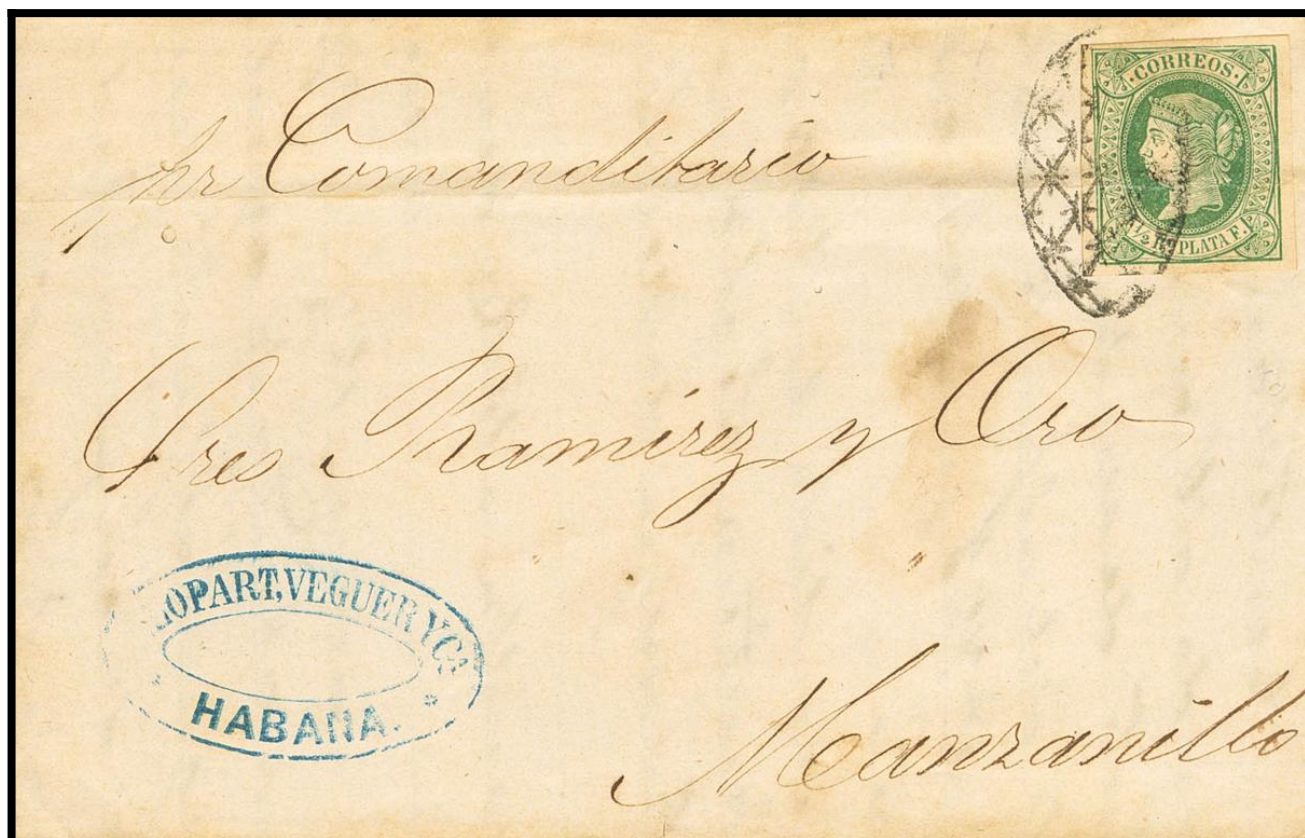 ·CORREOS·
½ Rl PLATA F.
pr Comanditario
Sres Ramirez y Oro
LOPART, VEGUER Y Ca
HABANA.
Manzanillo